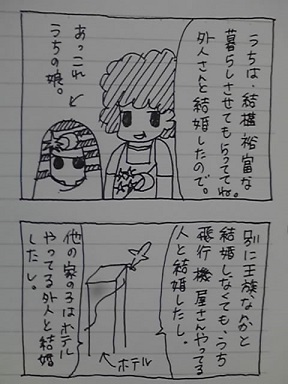 うちは、結構裕富な
暮らしさせてもらっててね。
外人さんと結婚したので。
あっこれ
うちの娘。
別に王族なかと
結婚しなくても、うち
飛行機屋さんやってる
人と結婚したし。
他の家の子はホテル
やってる外人と結婚
したし。
ホテル